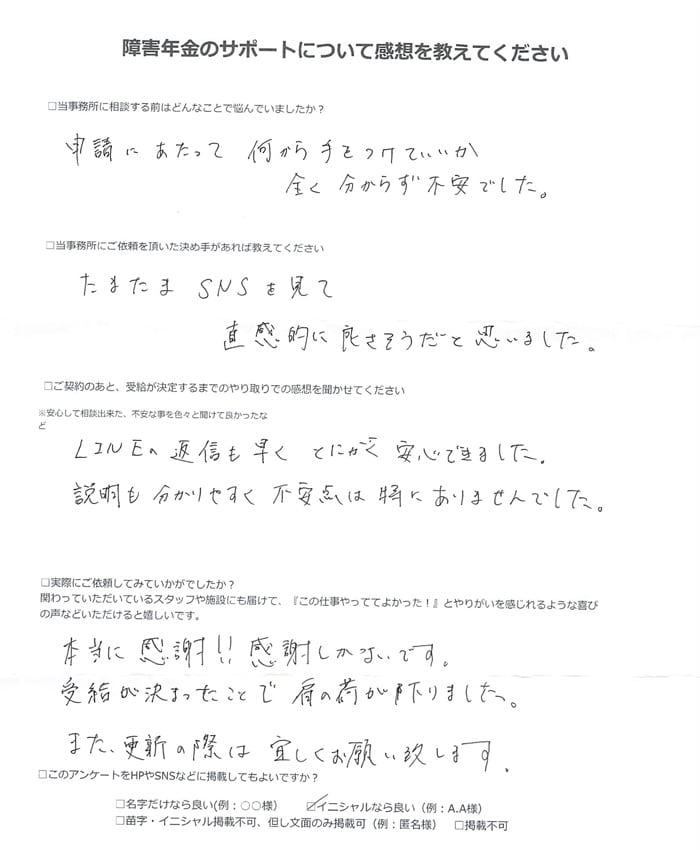 障害年金のサポートについて感想を教えてください
□当事務所に相談する前はどんなことで悩んでいましたか？
申請にあたって 何から手をつけていいか
全く 分からず 不安でした。
□当事務所にご依頼を頂いた決め手があれば教えてください
たまたま SNSを見て
直感的に 良さそうだと 思いました。
□ご契約のあと、受給が決定するまでのやり取りでの感想を聞かせてください
※安心して相談出来た、不安な事を色々と聞けて良かったな
ど
LINEの 返信も 早く とにかく 安心できました。
説明も 分かりやすく 不安点は 特に ありませんでした。
□実際にご依頼してみていかがでしたか？
関わっていただいているスタッフや施設にも届けて、『この仕事やっててよかった！』とやりがいを感じれるような喜び
の声などいただけると嬉しいです。
本当に 感謝!! 感謝しかないです。
受給が決まったことで 肩の荷が下りました。
また、更新の際は 宜しくお願い致します。
□このアンケートをHPやSNSなどに掲載してもよいですか？
□名字だけなら良い(例：○○様） ☑イニシャルなら良い（例：A.A様）
□苗字・イニシャル掲載不可、但し文面のみ掲載可（例：匿名様） □掲載不可